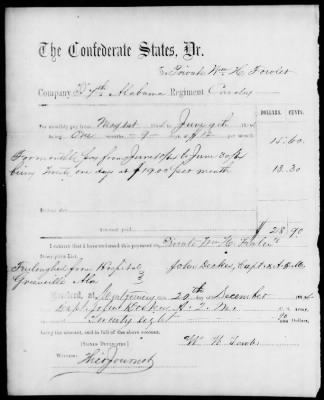 The Confederate States, Dr.
To Private Wm H. Fowler
Company D 7th Alabama Regiment Cavalry
DOLLARS. CENTS.
For monthly pay from May 1st to June 9th
being One months 9 at $12 15.60
For monthly pay from June 10th to June 30th
being twenty one days at $19.00 per month 13.30
Amount paid $ 28 90
I certify that I have endorsed this payment on Private Wm H. Fowler's
Furloughed from Hospital
Greenville Ala
John Decker, Capt. & A.Q.M.
Received, at Montgomery on 20th of December
Capt. John Decker A. Q. M.
Twenty eight 90 Dollars,
being the amount, and in full of the above account.
[SIGNED DUPLICATES.]
Wm H. Fowler
Witness: